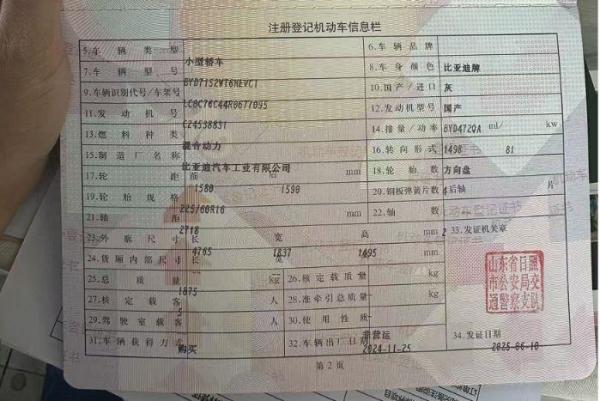 注册登记机动车信息栏
5.车辆类型 小型轿车 6.车辆品牌 比亚迪牌
7.车辆型号 BYD7152WT6HEVC1 8.车身颜色 灰
9.车辆识别代号/车架号 10.国产/进口 国产
11.发动机号 CZ4538831 12.发动机型号 BYD472QA
13.燃料种类 混合动力 14.排量/功率 1498 ml/ 81 kw
15.制造厂名称 比亚迪汽车工业有限公司 16.转向形式 方向盘
17.轮距 前 1580 后 1590 mm 18.轮胎数 4
19.轮胎规格 225/60R16 20.钢板弹簧片数 后轴 片
21.轴距 2718 mm 22.轴数 2
23.外廓尺寸 长 4765 宽 1837 高 1495 mm 33.发证机关章
24.货厢内部尺寸 长 宽 高 mm
25.总质量 1875 kg 26.核定载质量 kg
27.核定载客 5 人 28.准牵引总质量 kg
29.驾驶室载客 人 30.使用性质 非营运
31.车辆获得方式 购买 32.车辆出厂日期 2024-11-25 34.发证日期 2025-06-10
山东省日照
市公安局交
通警察支队
第2页